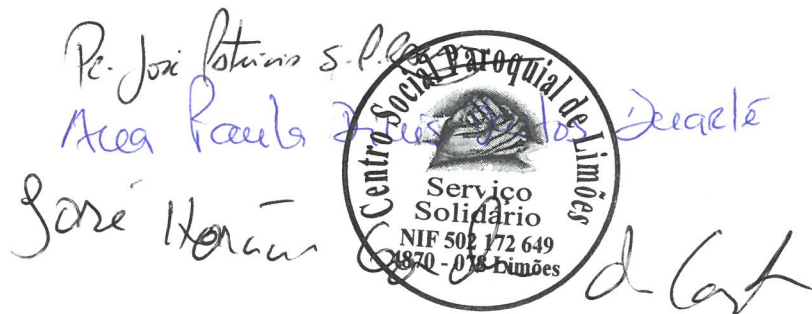 Pe. José Patrício S.
Ana Paula Dinis Santos Duarte
José Horácio da Costa
Centro Social Paroquial de Limões
Serviço
Solidário
NIF 502 172 649
4870 - 078 Limões